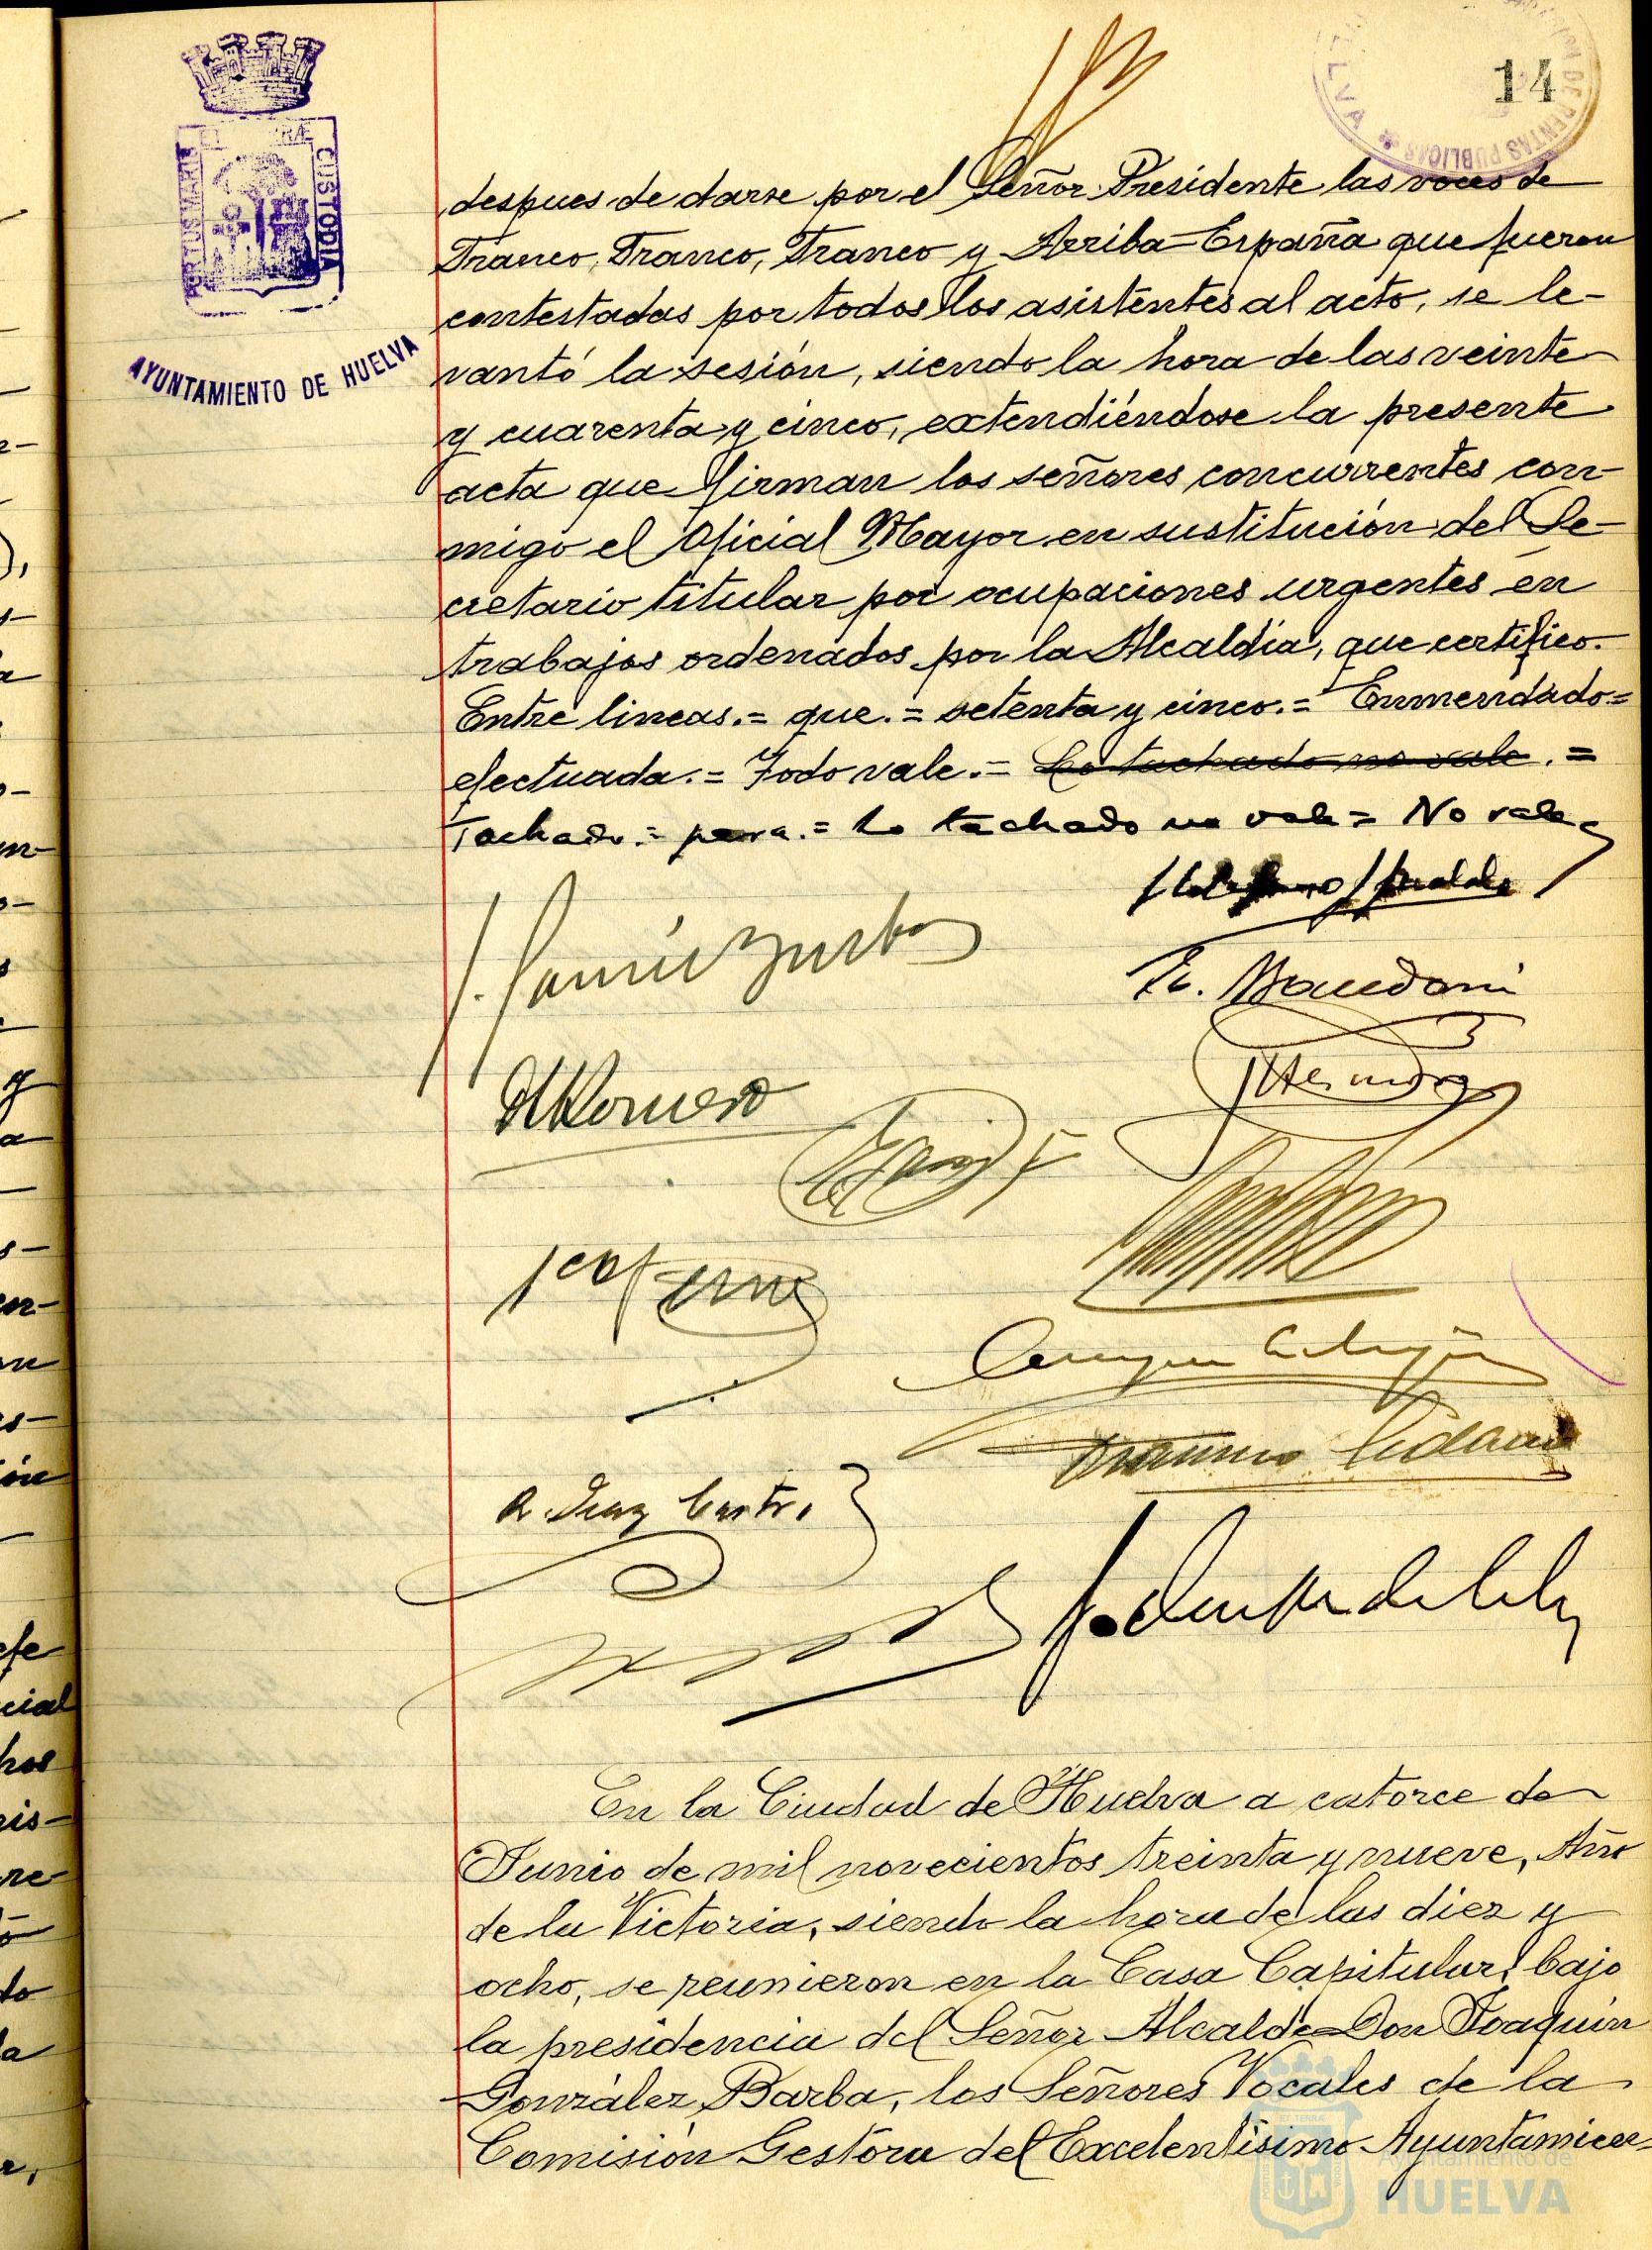 14
PORTUS MARIS ET TERRÆ CUSTODIA
AYUNTAMIENTO DE HUELVA
RENTAS PUBLICAS
despues de darse por el Señor Presidente las voces de
Franco, Franco, Franco y Arriba España que fueron
contestadas por todos los asistentes al acto, se le-
vantó la sesión, siendo la hora de las veinte
y cuarenta y cinco, extendiéndose la presente
acta que firman los señores concurrentes con-
migo el Oficial Mayor en sustitución del Se-
cretario titular por ocupaciones urgentes en
trabajos ordenados por la Alcaldía, que certifico.
Entre lineas.= que.= setenta y cinco.= Enmendado=
efectuada.= Todo vale.= Lo tachado no vale.=
Tachado.= para.= Lo tachado no vale= No vale
J. González Barba
Romero
R. Diaz
En la Ciudad de Huelva a catorce de
Junio de mil novecientos treinta y nueve, Año
de la Victoria, siendo la hora de las diez y
ocho, se reunieron en la Casa Capitular, bajo
la presidencia del Señor Alcalde Don Joaquín
González Barba, los Señores Vocales de la
Comisión Gestora del Excelentísimo Ayuntamien-
Ayuntamiento de
HUELVA